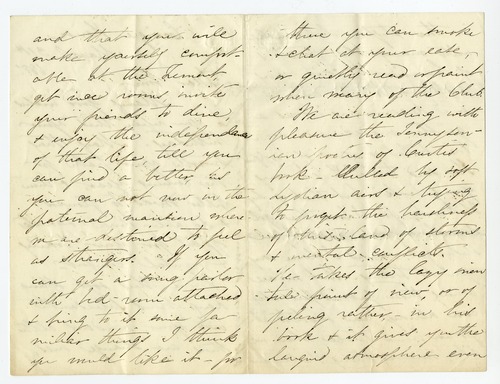 and that you will
make yourself comfort-
able at the Tremont,
get nice rooms invite
your friends to dine
& enjoy the independence
of that life, till you
can find a better, as
you can not now in the
paternal mansion where
we are destined to feel
as strangers. If you
can get a snug parlor
with bed-room attached
& bring to it some fa
miliar things I think
you would like it - for
there you can smoke
& chat at your ease,
or quietly read or paint
when weary of the Club.
We are reading with
pleasure the Tennyson-
ian poems of Curtis
book - lulled by soft
Lydian airs & trying
to forget the harshness
of land of storms
& mental conflicts.
He takes the lazy man
side point of view, or of
feeling rather - in his
book & it gives you the
languid atmosphere even